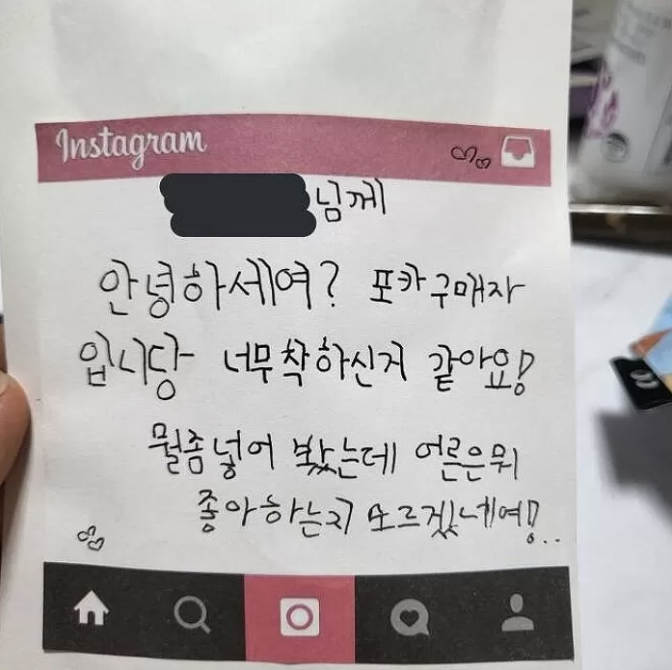 Instagram
님께
안녕하세여? 포카 구매자
입니당 너무 착하신거 같아요!
뭘좀 넣어 봤는데 어른은 뭐
좋아하는지 모르겠네여!..